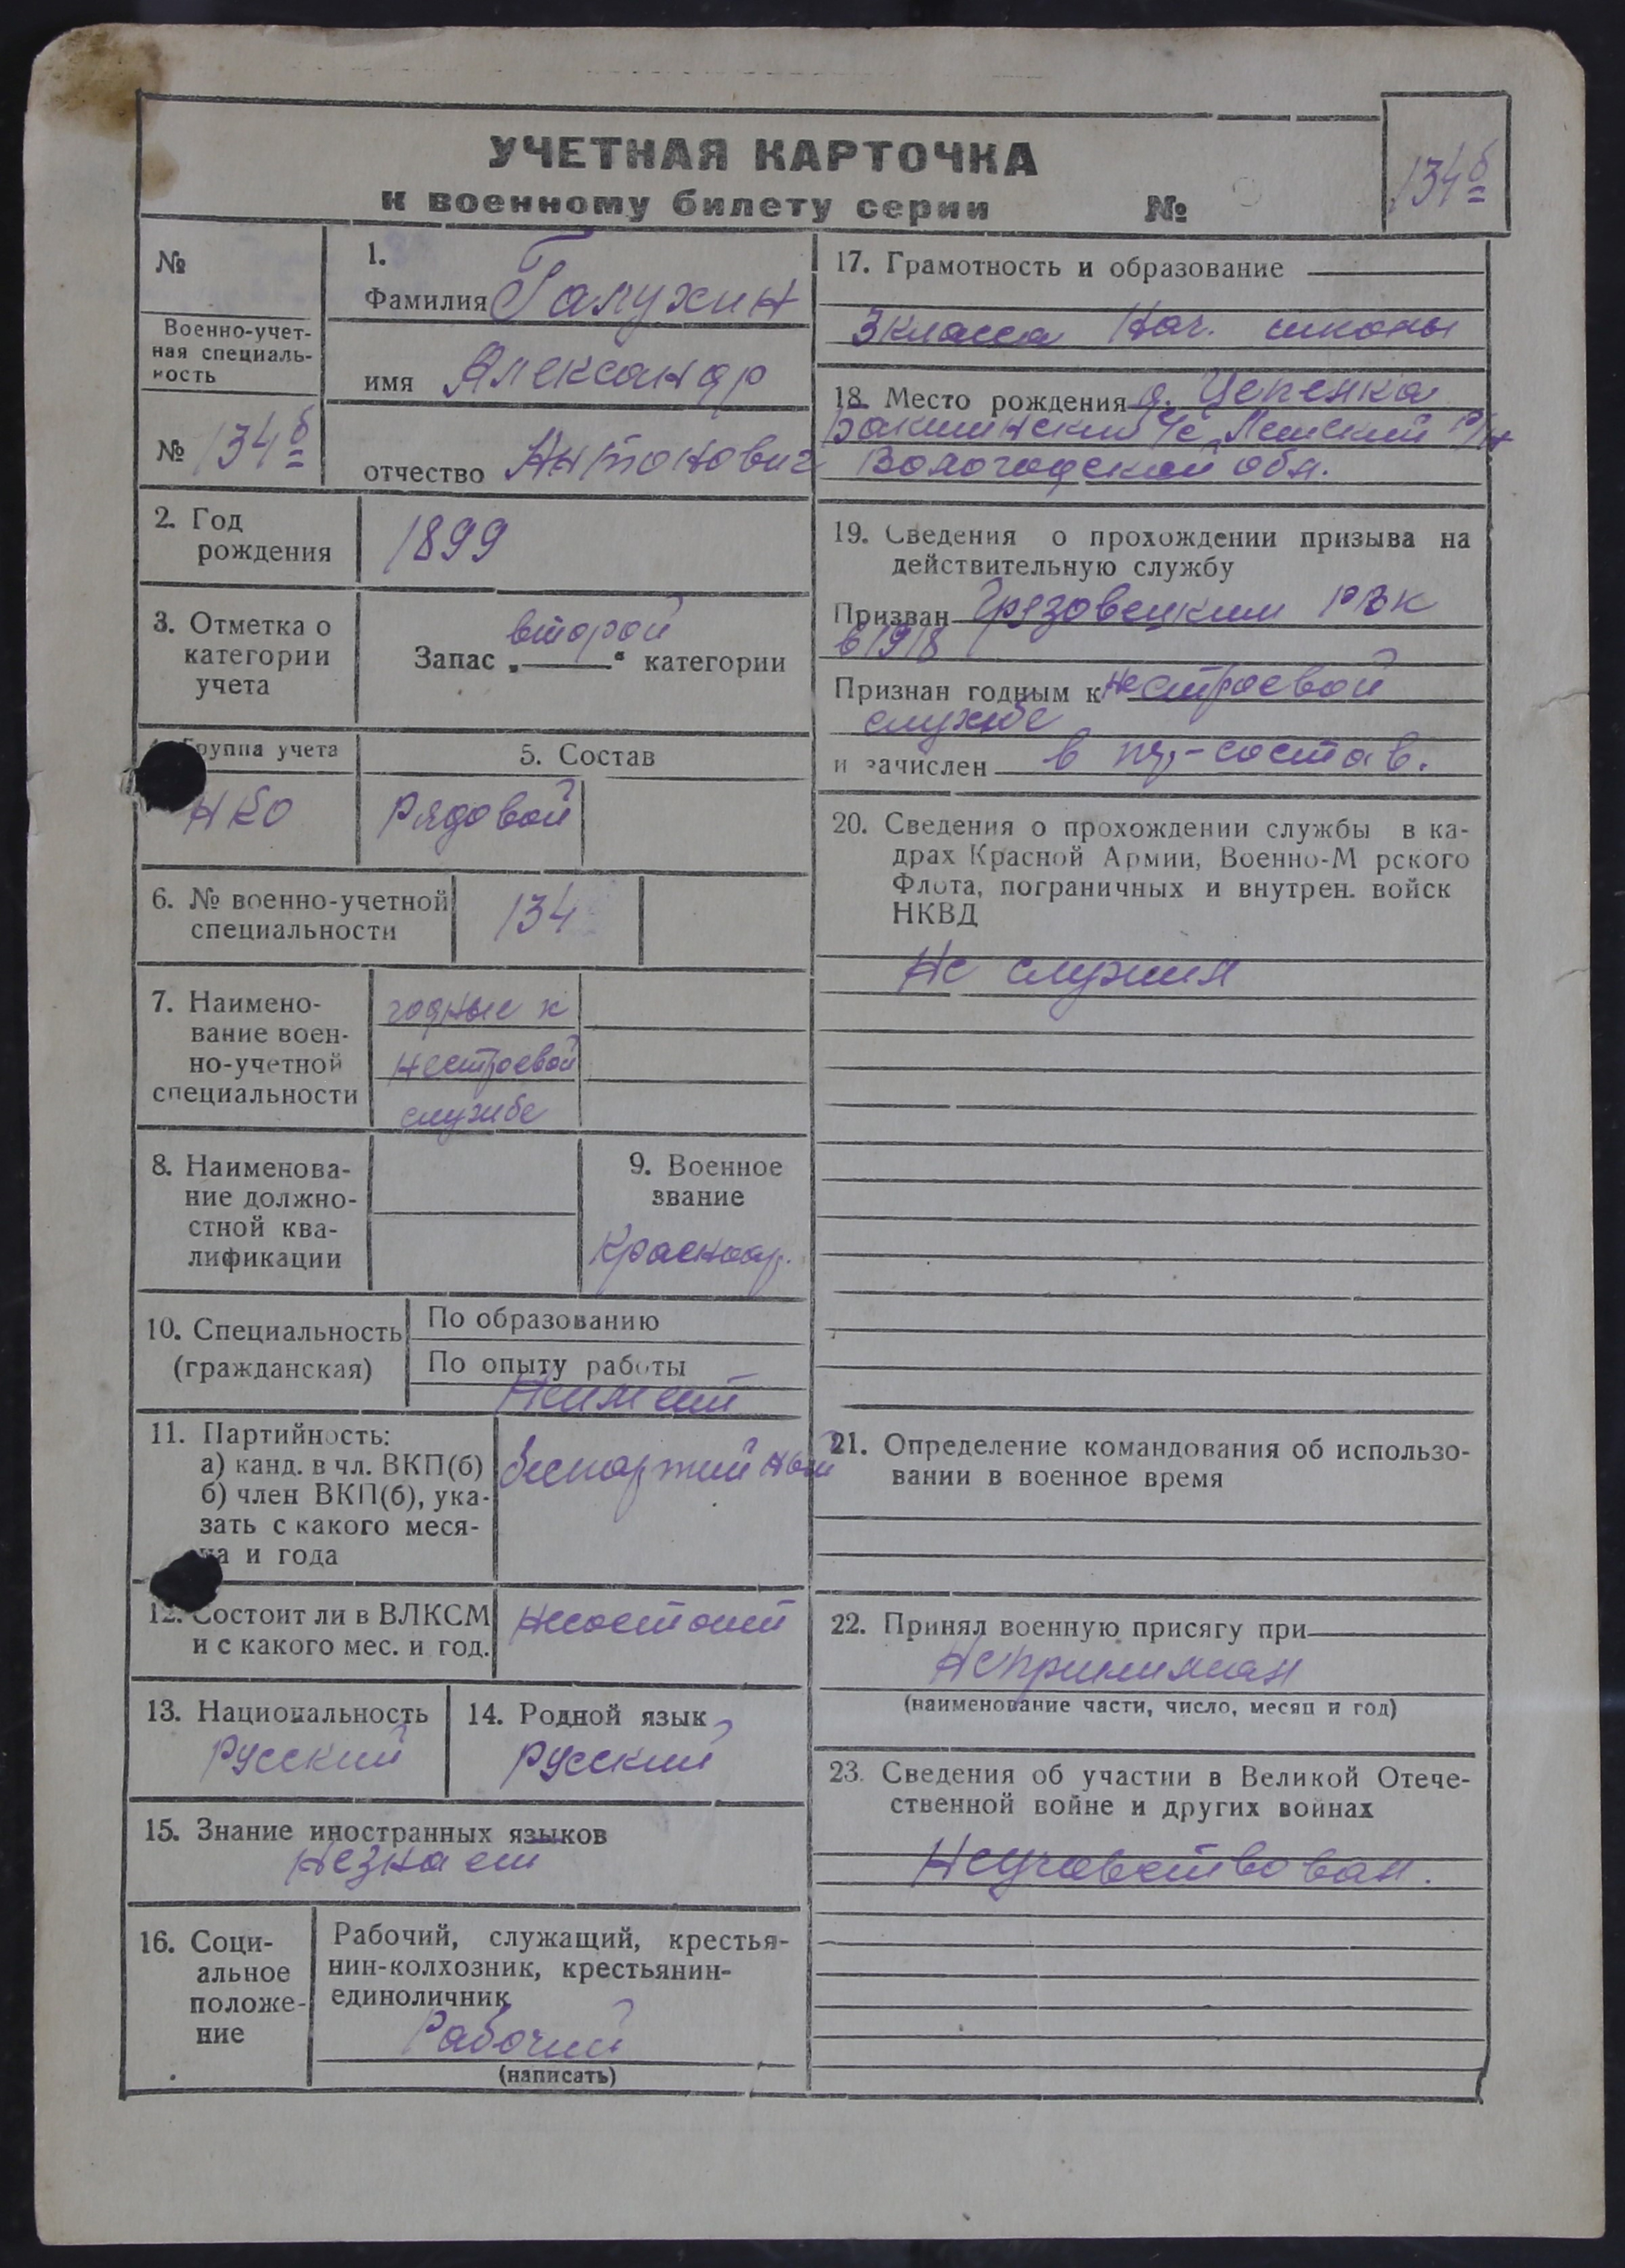 УЧЕТНАЯ КАРТОЧКА
к военному билету серии №
134б
№
Военно-учет-
ная специаль-
ность
№ 134б
1.
Фамилия Галухин
имя Александр
отчество Антонович
2. Год
рождения
1899
3. Отметка о
категории
учета
Запас „второй“ категории
Группа учета
НКО
5. Состав
Рядовой
6. № военно-учетной
специальности
134
7. Наимено-
вание воен-
но-учетной
специальности
годные к
нестроевой
службе
8. Наименова-
ние должно-
стной ква-
лификации
9. Военное
звание
Красноар.
10. Специальность
(гражданская)
По образованию
По опыту работы
Неимеет
11. Партийность:
а) канд. в чл. ВКП(б)
б) член ВКП(б), ука-
зать с какого меся-
ца и года
беспартийный
12. Состоит ли в ВЛКСМ
и с какого мес. и год.
Несостоит
13. Национальность
Русский
14. Родной язык
Русский
15. Знание иностранных языков
Незнает
16. Соци-
альное
положе-
ние
Рабочий, служащий, крестья-
нин-колхозник, крестьянин-
единоличник
Рабочий
(написать)
17. Грамотность и образование
3 класса Нач. школы
18. Место рождения д. Цепенка
с/с Лежский р/н
Вологодской обл.
19. Сведения о прохождении призыва на
действительную службу
Призван Грязовецким РВК
в 1918
Признан годным к нестроевой
службе
и зачислен в состав.
20. Сведения о прохождении службы в ка-
драх Красной Армии, Военно-М рского
Флота, пограничных и внутрен. войск
НКВД
Не служил
21. Определение командования об использо-
вании в военное время
22. Принял военную присягу при
Непринимал
(наименование части, число, месяц и год)
23. Сведения об участии в Великой Отече-
ственной войне и других войнах
Неучавствовал.